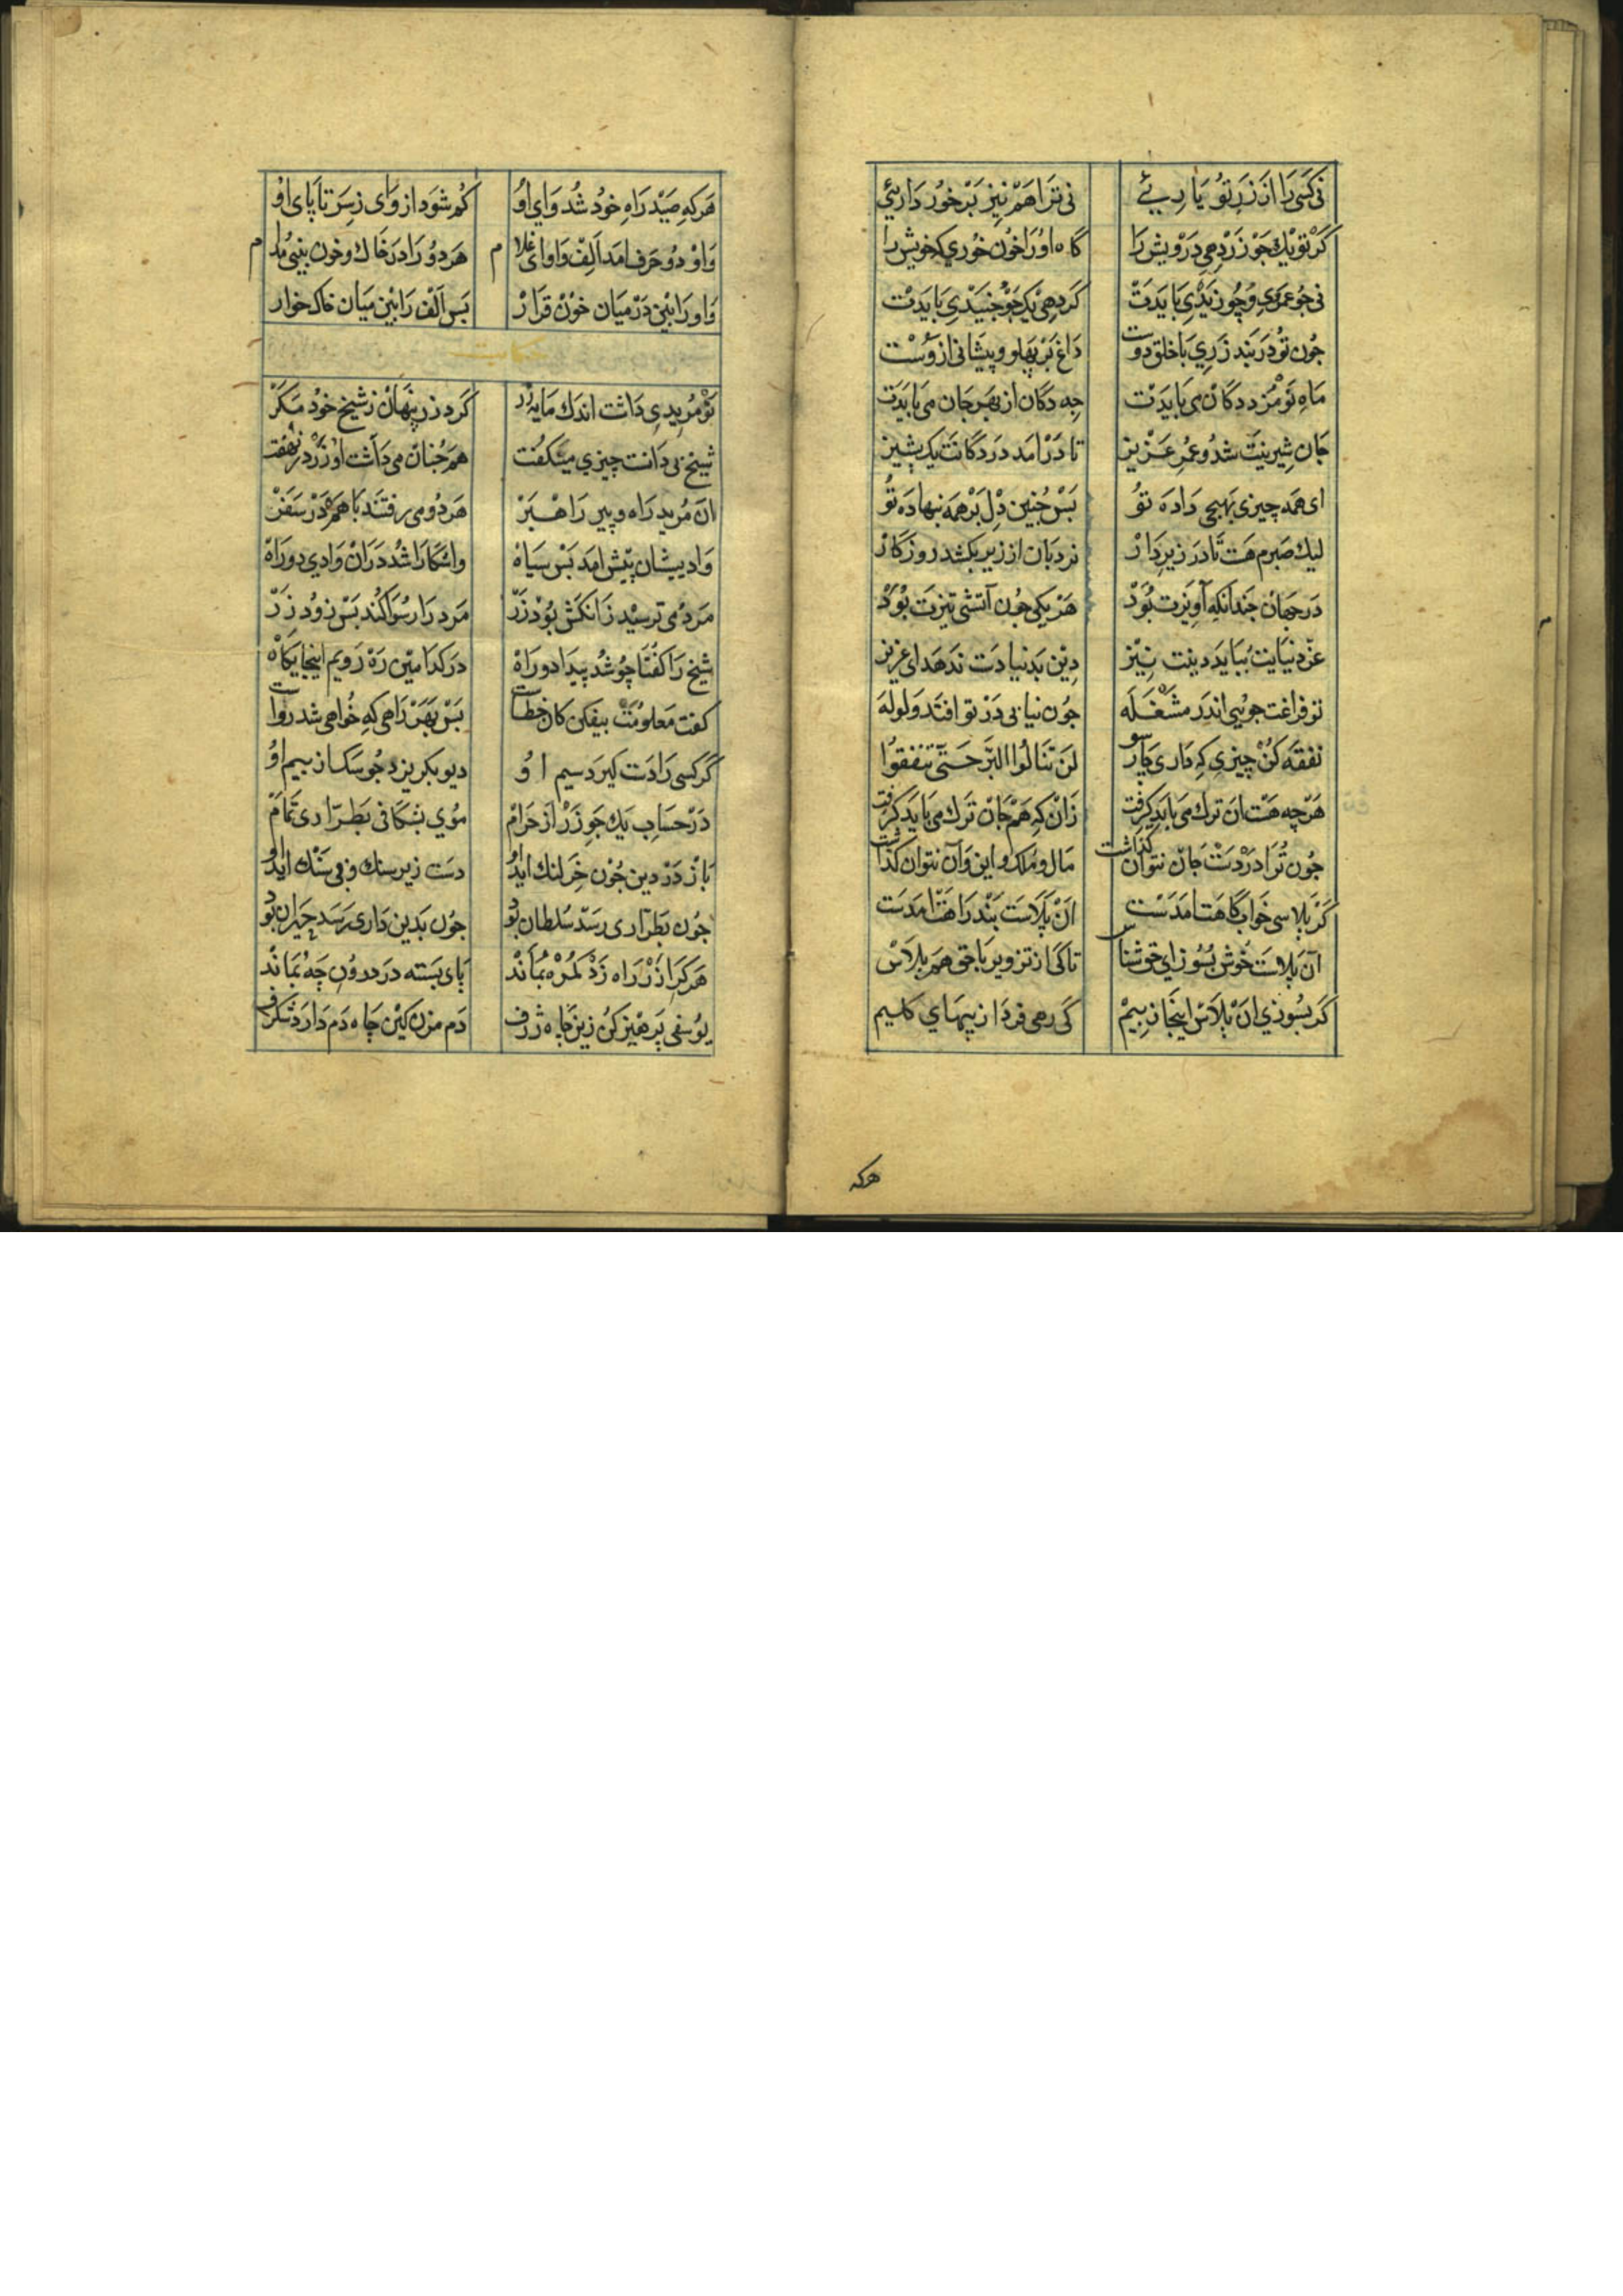 نی کسی را از زر تو یاریئے نی ترا هم نیز برخورداریئي
گر تو یك جو زر دهی درویش را گاه او را خون خوری که خویش را
نی جو عمری و چو زیدی بایدت گر دهی یک جو جنیدی بایدت
جون تو در بند زری با خلق دوست داغ بر پهلو و پیشانی ازوست
ماه نو مزد دکان می بایدت جه دکان از بهر جان می بایدت
جان شیرینت شد و عمر عزیز تا درامد در دکانت یک پشیز
ای همه چیزی بهیچی داده تو بس جنین دل بر همه بنهاده تو
لیك صبرم هست تا در زیر دار نردبان از زیر بکشد روزکار
در جهان جندانکه آویزت بود هر یکی جون آتشی تیزت بود
غز دنیایت بباید دینت نیز دین بدنیا دست ندهد ای عزیز
تو فراغت جویی اندر مشغله جون نیابی در تو افتد ولوله
نفقه کن چیزی که داری چار سو لن تنالوا البر حتی تنفقوا
هرچه هست ان ترك می باید کرفت زان که هم جان ترك می باید کرفت
جون ترا در دست جان نتوان کذاشت مال و ملک و این و آن نتوان کذاشت
کر پلاسی خوابکاهت امدست ان پلاست بند راهت امدست
آن پلاست خوش بسوز ای حق شناس تا کی از تزویر با حق هم پلاس
کر بسوزی ان پلاس اینجا ز بیم کی رهی فردا ز پهنای کلیم
هرکه
هرکه صید راه خود شد وای او کم شود از وای ز سر تا پای او
واو دو حرف امد الف واو ای غلام هر دو را در خاك و خون بینی مدام
واو را بینی در میان خون قرار بس الف را بین میان خاک خوار
حکایت
نو مریدی داشت اندك مایه زر کرد زر پنهان ز شیخ خود مکر
شیخ می دانست چیزي مینکفت هم جنان می داشت او زر در نهفت
ان مرید راه و پیر راهبر هر دو می رفتند با هم در سفر
وادییشان پیش امد بس سیاه واشکارا شد دران وادي دو راه
مرد می ترسید زانکش بود زر مرد را رسوا کند بس زود زر
شیخ را کفتا چو شد پیدا دو راه در کدامین ره رویم اینجا یکاه
کفت معلومت بیفکن کان خطاست بس بهر راهی که خواهی شد رواست
کر کسی را دست کیرد سیم او دیو بکریزد جو سک از بیم او
در حساب یك جو زر از حرام موی بشکافی بطراری تمام
باز در دین جون خر لنك اید او دست زیر سنك و بی سنك اید او
جون بطراری رسد سلطان بود جون بدین داری رسد حیران بود
هرکرا زر راه زد کمره بماند پای بسته در درون چه بماند
یوسفی پرهیز کن زین چاه ژرف دم مزن کین چاه دم دارد شکرف